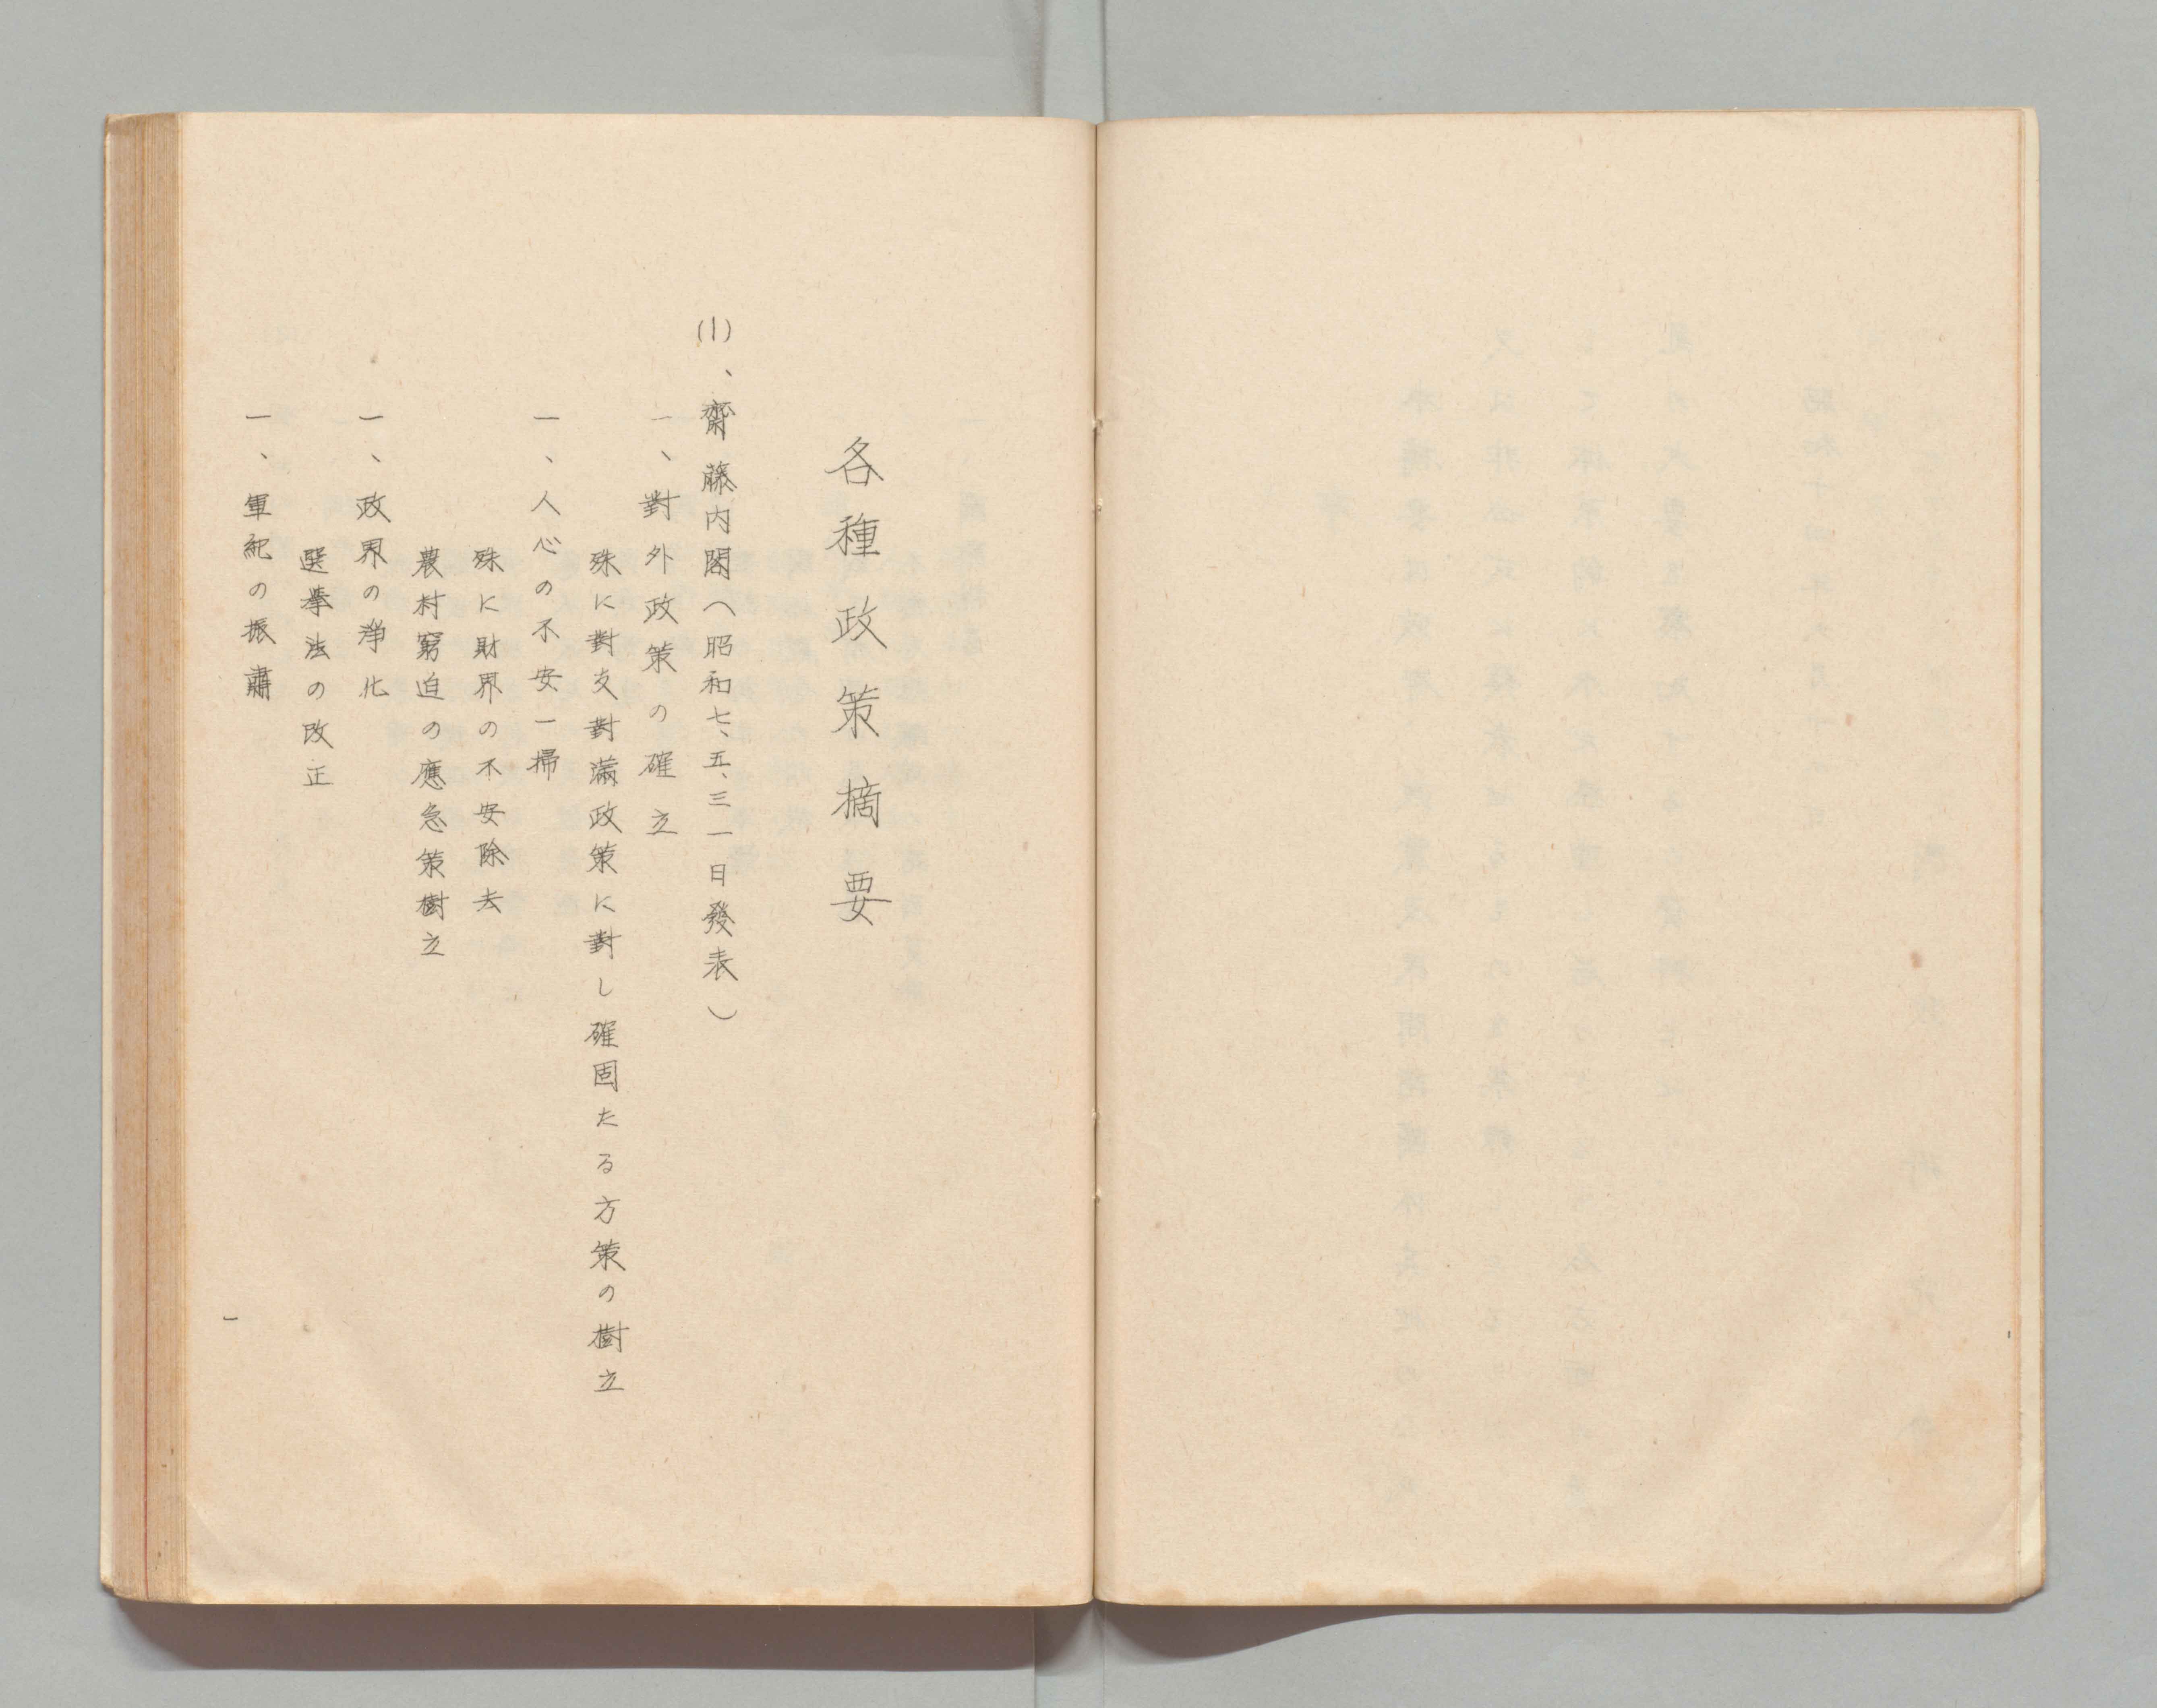 各種政策摘要
(1)、齋藤内閣(昭和七、五、三一日發表)
一、對外政策の確立
殊に對支對滿政策に對し確固たる方策の樹立
一、人心の不安一掃
殊に財界の不安除去
農村窮迫の應急策樹立
一、政界の淨化
選擧法の改正
一、軍紀の振肅
一